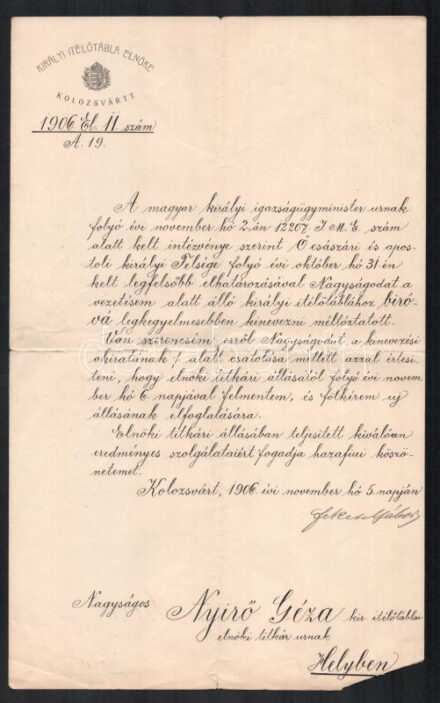 KIRÁLYI ITÉLŐTÁBLA ELNÖKE
KOLOZSVÁRTT
1906 El. II szám
A. 19.
A magyar királyi igazságügyminister urnak
folyó évi november hó 2-án 12207. I. M. E. szám
alatt kelt intézvénye szerint Ő császári és apos-
toli királyi Felsége folyó évi október hó 31-én
kelt legfelsőbb elhatározásával Nagyságodat a
vezetésem alatt álló királyi itélőtáblához biró-
vá legkegyelmesebben kinevezni méltóztatott.
Van szerencsém erről Nagyságodat a kinevezési
okiratának ·/. alatt csatolása mellett azzal értesi-
teni, hogy elnöki titkári állásától folyó évi novem
ber hó 6. napjával felmentem, is fölkérem uj
állásának elfoglalására.
Elnöki titkári állásában teljesitett kiválóan
eredményes szolgálataiért fogadja hazafiui köszö-
netemet.
Kolozsvárt, 1906. évi november hó 5. napján
Fekete Gábor
Nagyságos Nyirő Géza kir. itélőtáblai
elnöki titkár urnak
Helyben